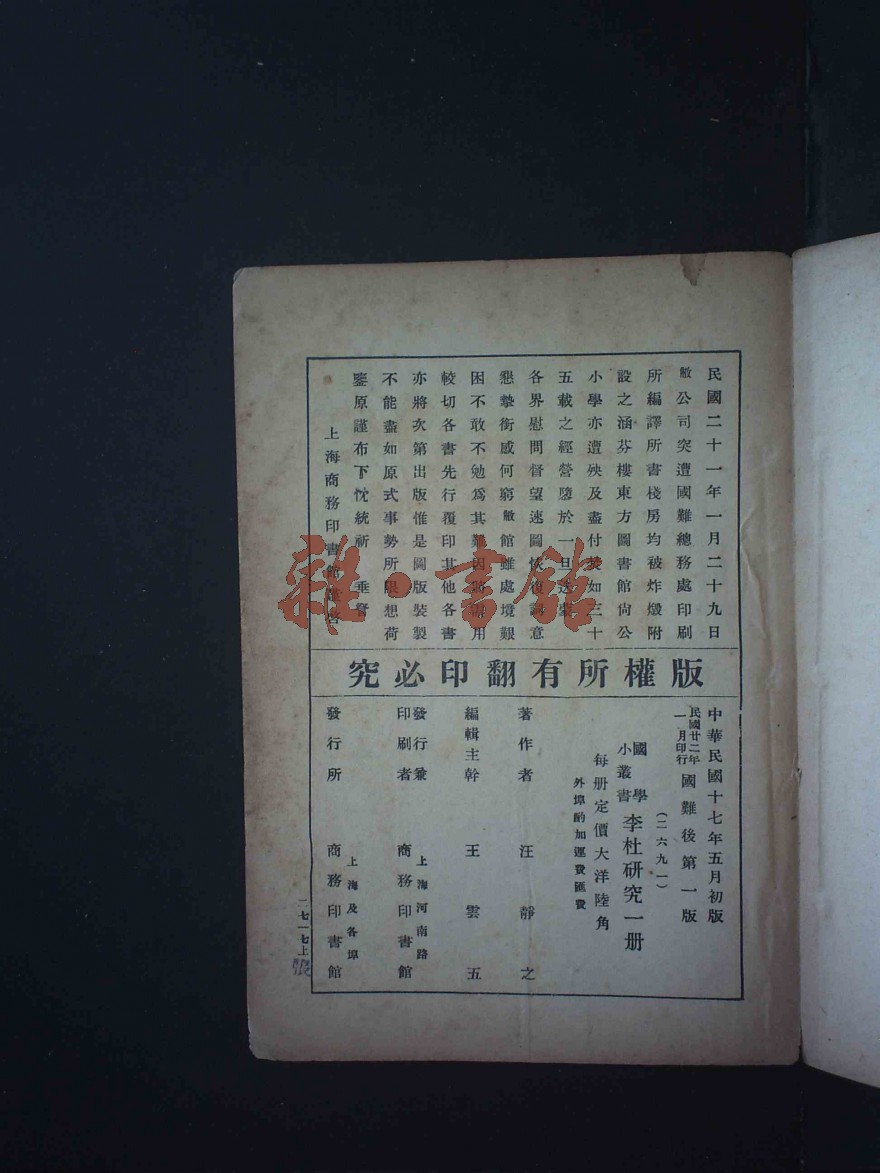 民國二十一年一月二十九日
敝公司突遭國難總務處印刷
所編譯所書棧房均被炸燬附
設之涵芬樓東方圖書館尙公
小學亦遭殃及盡付焚如三十
五載之經營隳於一旦迭蒙
各界慰問督望速圖恢復詞意
懇摯銜感何窮敝館雖處境艱
困不敢不勉爲其難因將需用
較切各書先行覆印其他各書
亦將次第出版惟是圖版裝製
不能盡如原式事勢所限想荷
鑒原謹布下忱統祈 垂詧
上海商務印書館謹啓
雜·書館
版權所有翻印必究
中華民國十七年五月初版
民國廿二年一月印行 國難後第一版
(二六九一)
國學小叢書 李杜研究一册
每册定價大洋陸角
外埠酌加運費匯費
著作者 汪靜之
編輯主幹 王雲五
發行兼印刷者 上海河南路 商務印書館
發行所 上海及各埠 商務印書館
二七一七上
張